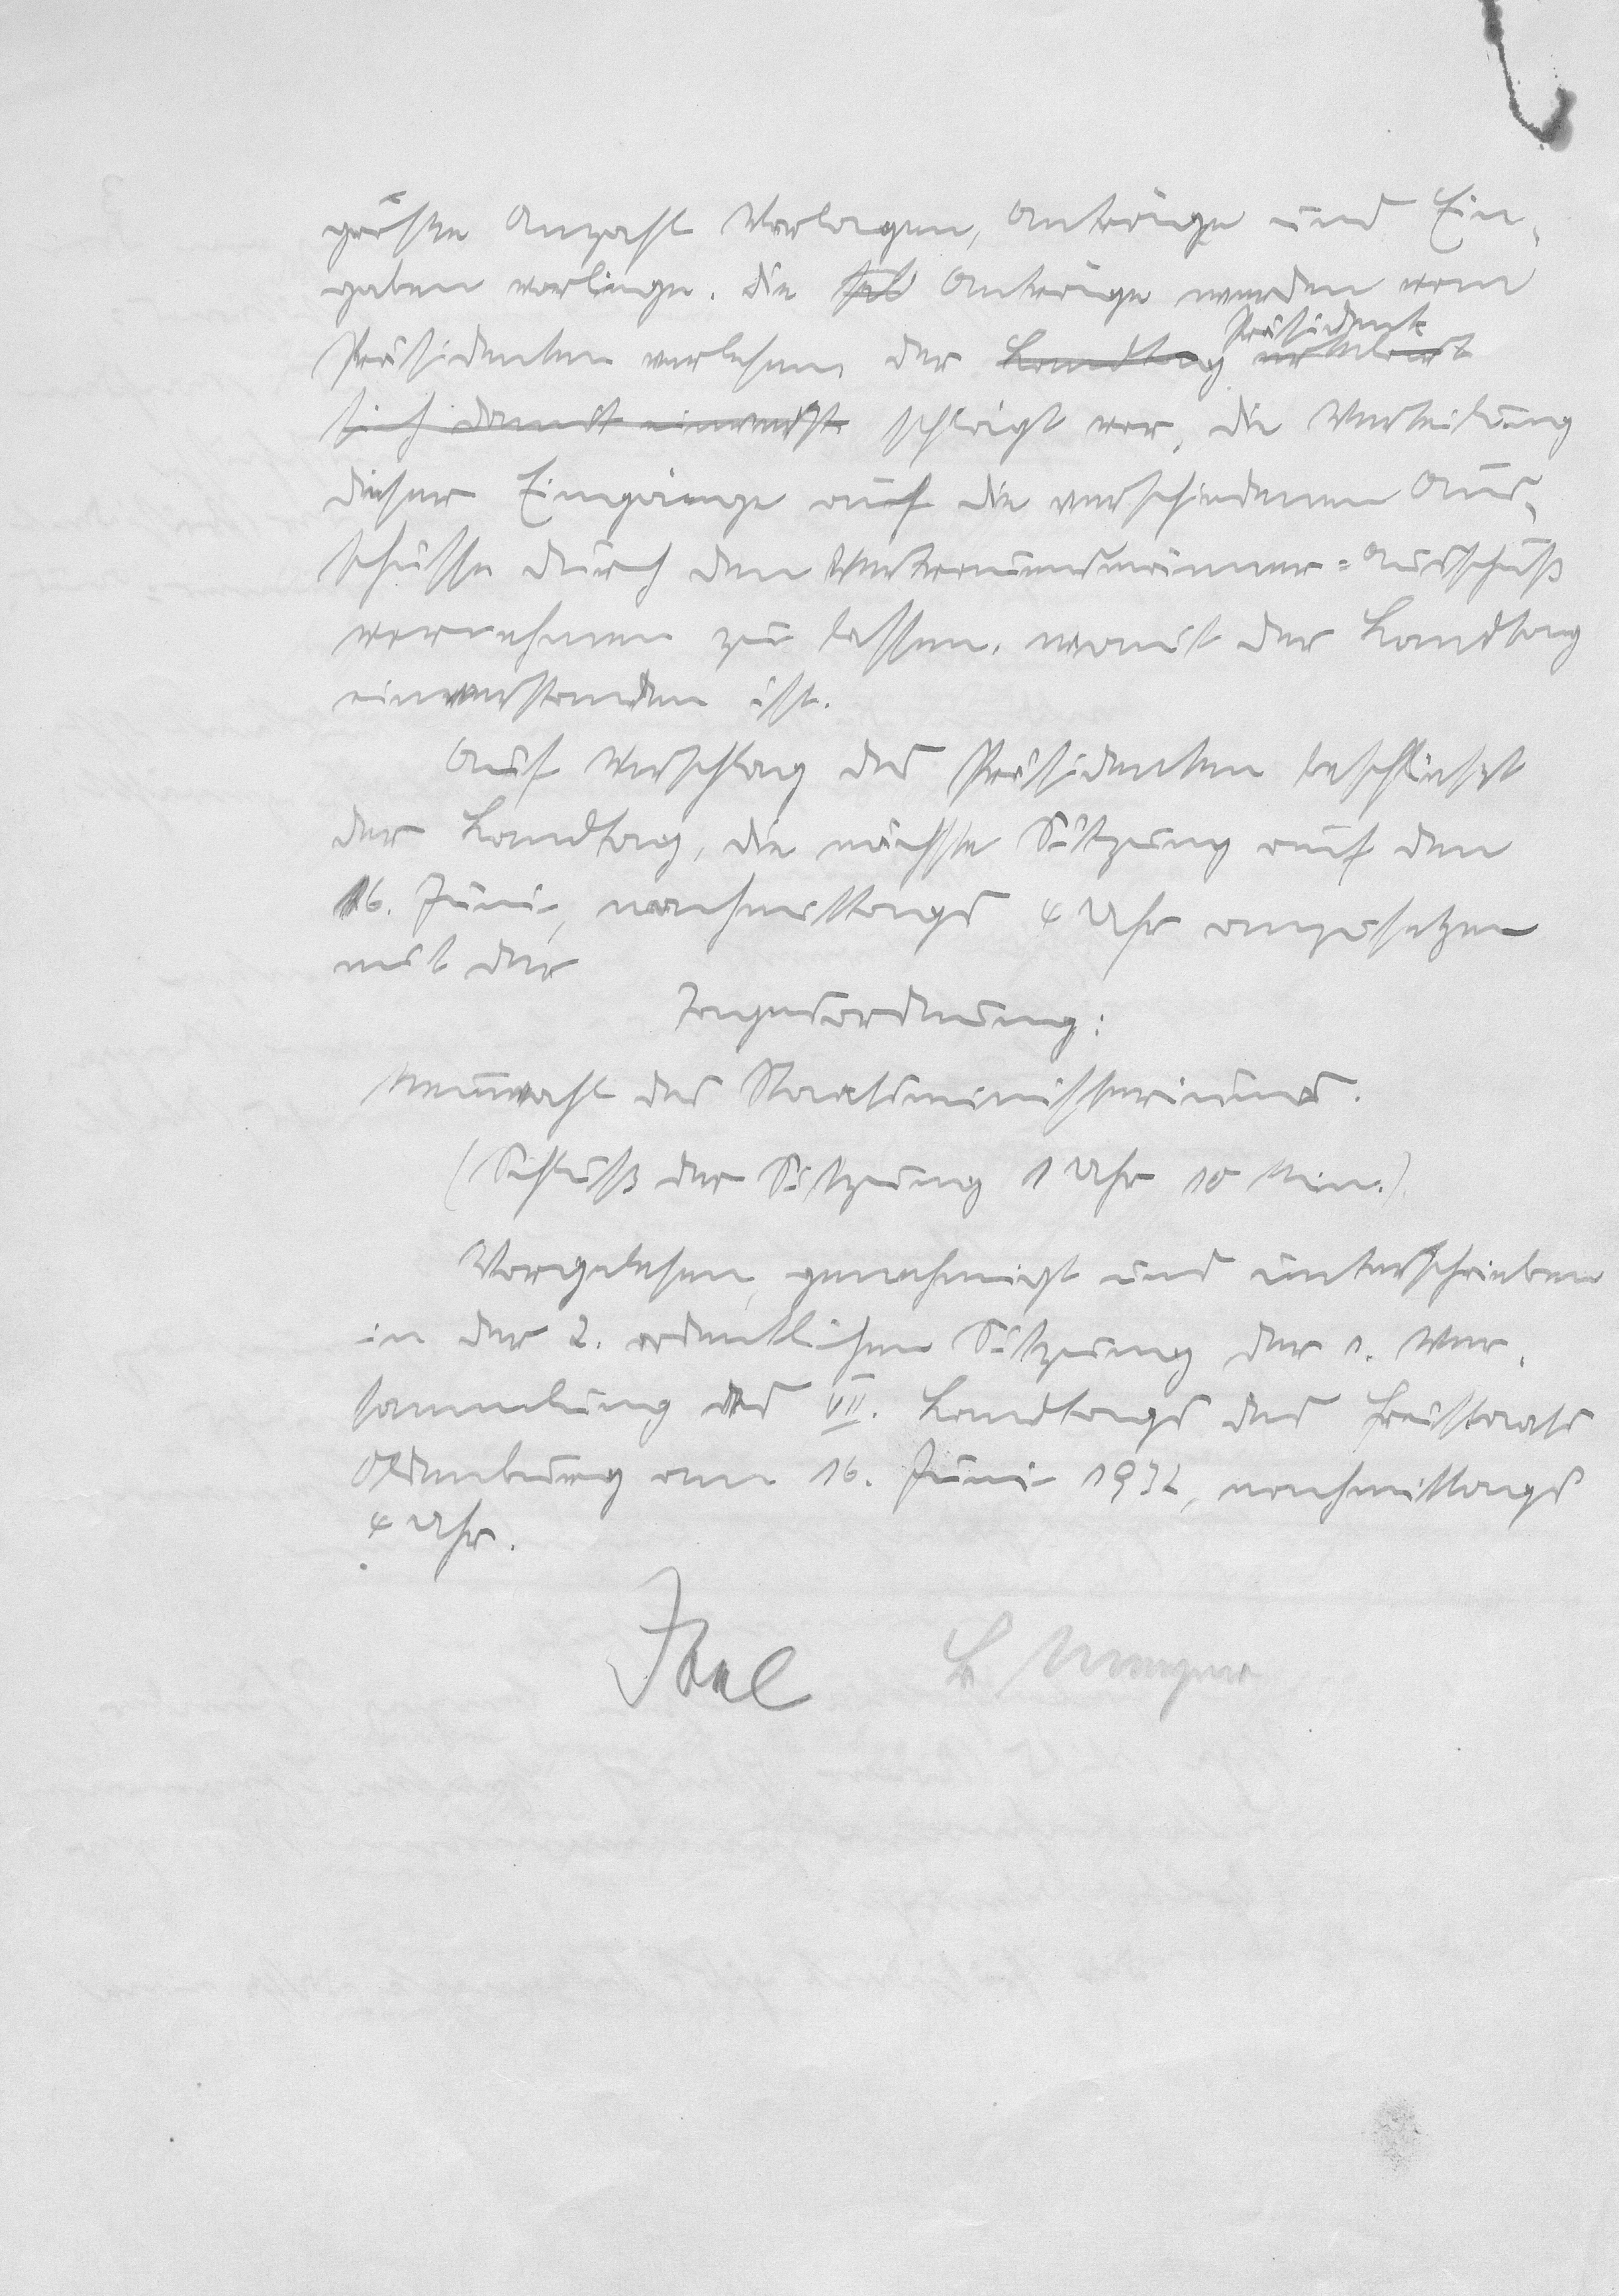 größere Anzahl Vorlagen, Anträge und Ein-
gaben vorliege. Die Anträge werden vom
Präsidenten verlesen, der Landtag erklärt Präsident
sich damit einverst. schlägt vor, die Verteilung
dieser Eingänge auf die verschiedenen Aus-
schüsse durch den Vertrauensmänner-Ausschuß
vornehmen zu lassen, womit der Landtag
einverstanden ist.
Auf Vorschlag des Präsidenten beschließt
der Landtag, die nächste Sitzung auf den
16. Juni, nachmittags 4 Uhr anzusetzen
mit der
Tagesordnung:
Neuwahl des Staatsministeriums.
(Schluß der Sitzung 1 Uhr 10 Min.)
Vorgelesen, genehmigt und unterschrieben
in der 2. ordentlichen Sitzung der 1. Ver-
sammlung des VII. Landtags des Freistaats
Oldenburg am 16. Juni 1932, nachmittags
4 Uhr.
Joel